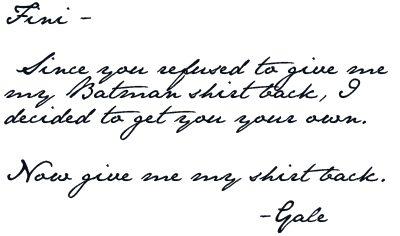 Fini -
Since you refused to give me
my Batman shirt back, I
decided to get you your own.
Now give me my shirt back.
-Gale